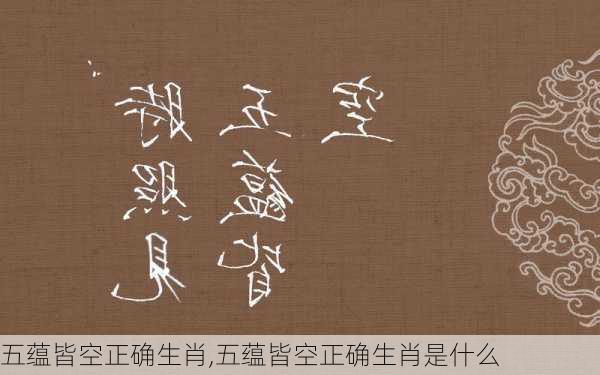 時照見
五蘊皆
空
五蕴皆空正确生肖,五蕴皆空正确生肖是什么